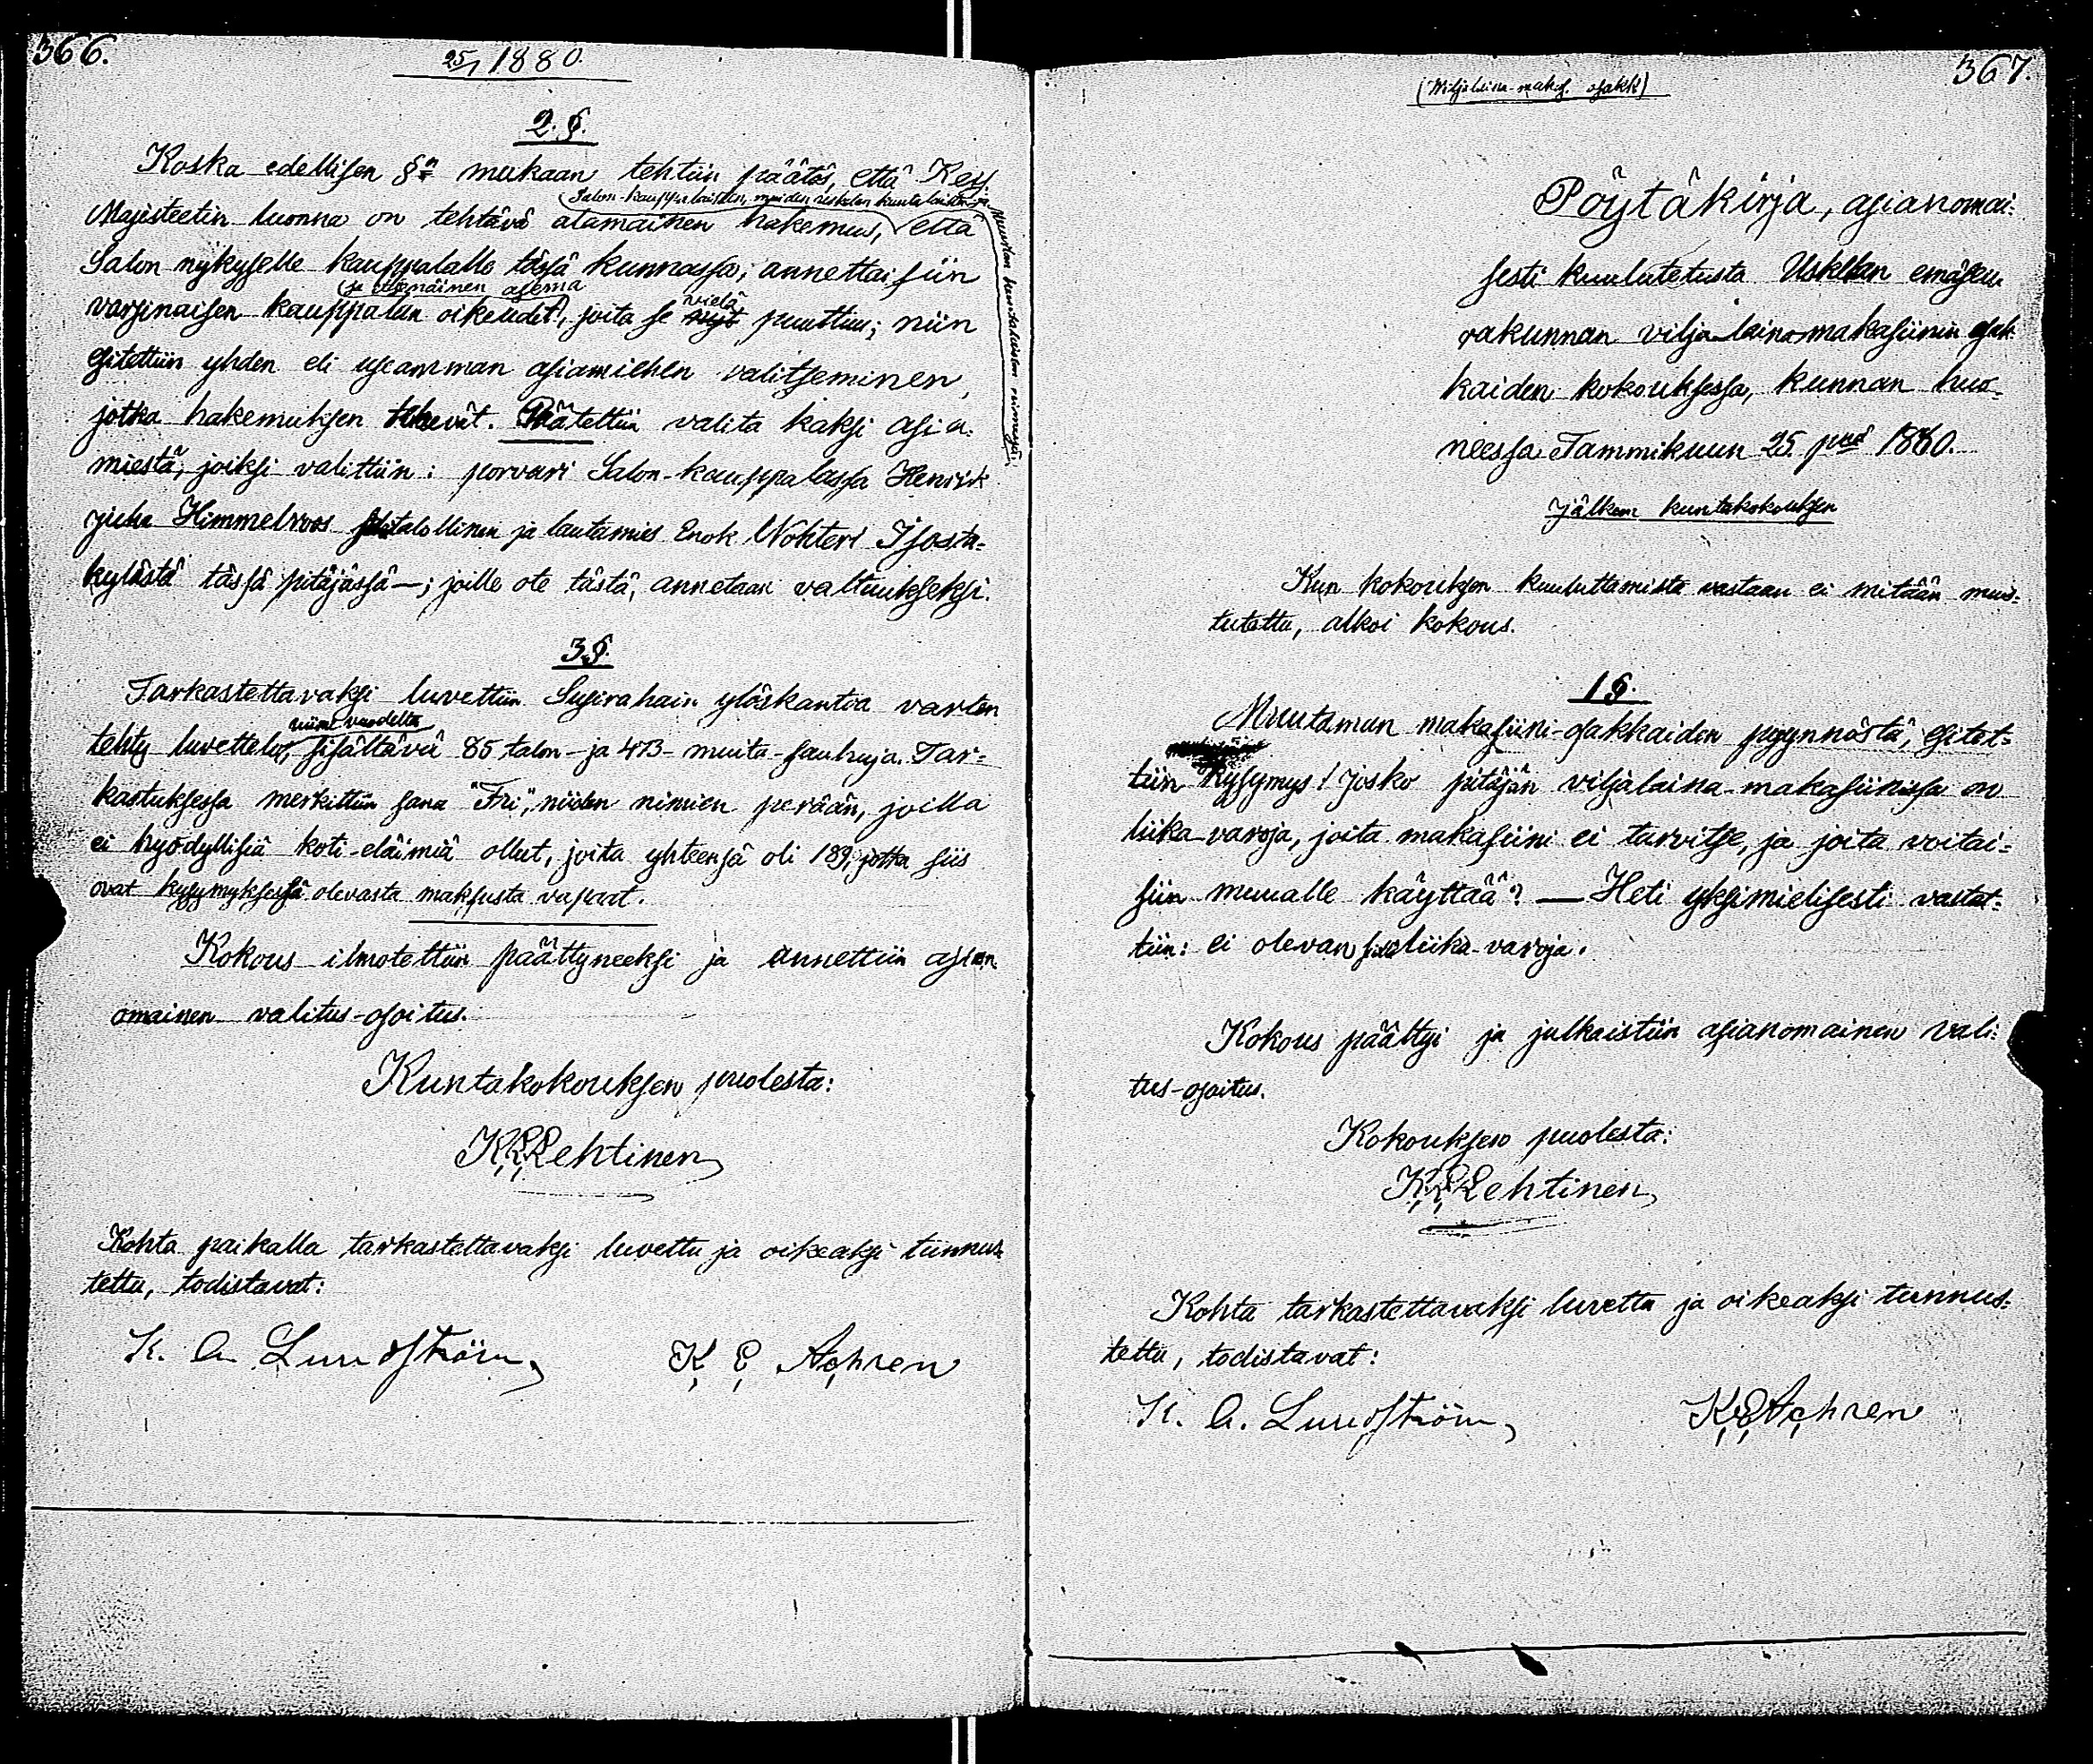 366.
25/1 1880.
2. §.
Koska edellisen §n mukaan tehtiin päätös, että Keis.
Salon-kauppalaisten, muiden Uskelan kuntalaisten ja
Muurlan kuntalaisten nimessä,
Majisteetin luonna on tehtävä alamainen hakemus, että
Salon nykyselle kauppalalle tässä kunnassa, annettaisiin
ja asema
varsinaisen kauppalan oikeudet, joita se nyt vielä puuttuu; niin
esitettiin yhden eli useamman asiamiehen valitseminen,
jotka hakemuksen tekevät. Päätettiin valita kaksi asia-
miestä, joiksi valittiin: porvari Salon-kauppalassa Henrik
Juha Himmelroos talollinen ja lautamies Enok Wohteri Isosta-
kylästä tässä pitäjässä—; joille ote tästä, annetaan valtuukseksi.
3. §.
Tarkastettavaksi luvettiin Susirahain ylöskantoa varten
viime vuodelta
tehty luettelo, sisältävä 85 talon- ja 473- muita-sauhuja. Tar-
kastuksessa merkittiin sana "Fri", niiden nimien perään, joilla
ei hyödyllisiä koti-eläimiä ollut, joita yhteensä oli 189, jotka siis
ovat kysymyksessä olevasta maksusta vapaat.
Kokous ilmotettiin päättyneeksi ja annettiin asian-
omainen valitus-osoitus.
Kuntakokouksen puolesta:
K. E. Lehtinen
Kohta paikalla tarkastettavaksi luvettu ja oikeaksi tunnus-
tettu, todistavat:
K. A. Lundström
K E Achren
367.
(Wiljalaina-makas. osakk)
Pöytäkirja, asianomai-
sesti kuulutetusta Uskelan emäseu
rakunnan viljalainamakasiinin osak-
kaiden kokouksessa, kunnan huo-
neessa Tammikuun 25. pnä 1880.
jälkeen kuntakokouksen
Kun kokouksen kuuluttamista vastaan ei mitään muis-
tutettu, alkoi kokous.
1 §.
Muutamun makasiini-osakkaiden pyynnöstä, esitet-
tiin kysymys! Josko pitäjän viljalaina-makasiinissa on
liika-varoja, joita makasiini ei tarvitse, ja joita voitai-
siin muualle käyttää? — Heti yksimielisesti vastat-
tiin: ei olevan liika-varoja.
Kokous päättyi ja julkaistiin asianomainen vali-
tus-osoitus.
Kokouksen puolesta:
K. E. Lehtinen
Kohta tarkastettavaksi luvettu ja oikeaksi tunnus-
tettu, todistavat:
K. A. Lundström
K E Achren